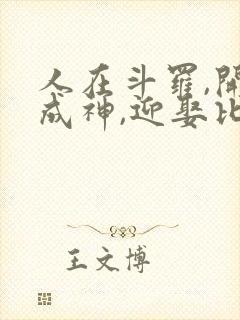 人在斗羅,開
成神,迎娶比
王文博